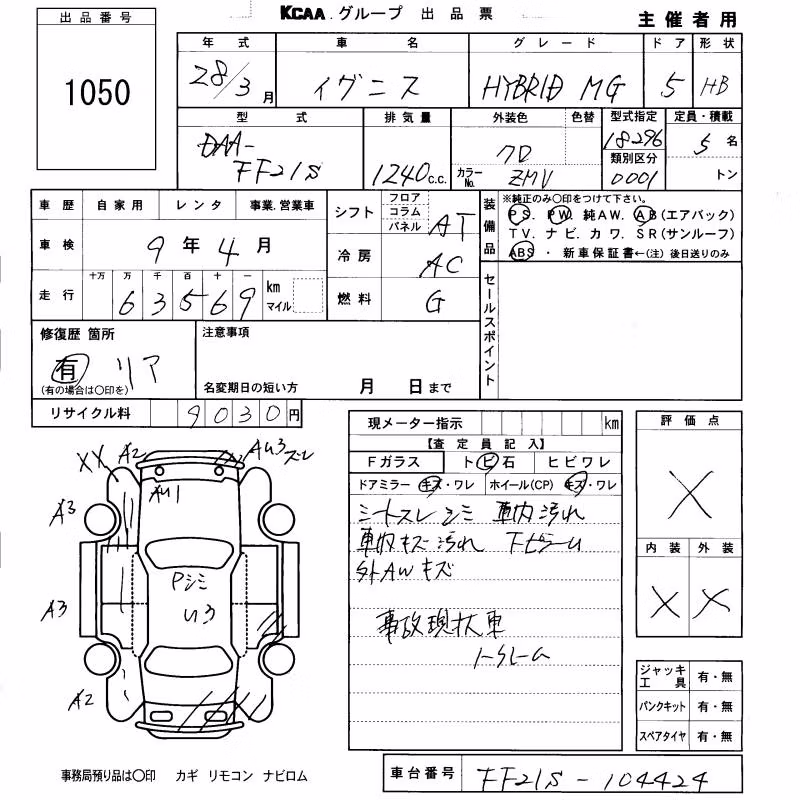 出品番号
KCAA.グループ 出品票
主催者用
1050
年式 車名 グレード ドア 形状
28/3月 イグニス HYBRID MG 5 HB
型式 排気量 外装色 色替 型式指定 定員・積載
DAA- FF21S 1240c.c. クロ 18296 5名
カラーNo. ZMV 類別区分 0001 トン
車歴 自家用 レンタ 事業.営業車
シフト フロア コラム パネル AT
装備品 ※純正のみ○印をつけて下さい。
PS. PW. 純AW. AB(エアバック)
TV. ナビ. カワ. SR(サンルーフ)
ABS ・ 新車保証書←(注) 後日送りのみ
車検 9年4月
冷房 AC
走行 十万 万 千 百 十 一
63569 km マイル
燃料 G
セールスポイント
修復歴 箇所
有 リア
(有の場合は○印を)
注意事項
名変期日の短い方 月 日まで
リサイクル料 9030円
現メーター指示 km
評価点
【査定員記入】
Fガラス ト ビ 石 ヒビワレ
ドアミラー キズ・ワレ ホイール(CP) キズ・ワレ
シートスレ シミ 車内汚れ
車内キズ 汚れ
外AWキズ
事故現状車
X
内装 外装
X X
XX A2 AU3 ズレ
AU1
A3
Pシミ
A3 U3
A2
ジャッキ工具 有・無
パンクキット 有・無
スペアタイヤ 有・無
事務局預り品は○印 カギ リモコン ナビロム
車台番号 FF21S-104424